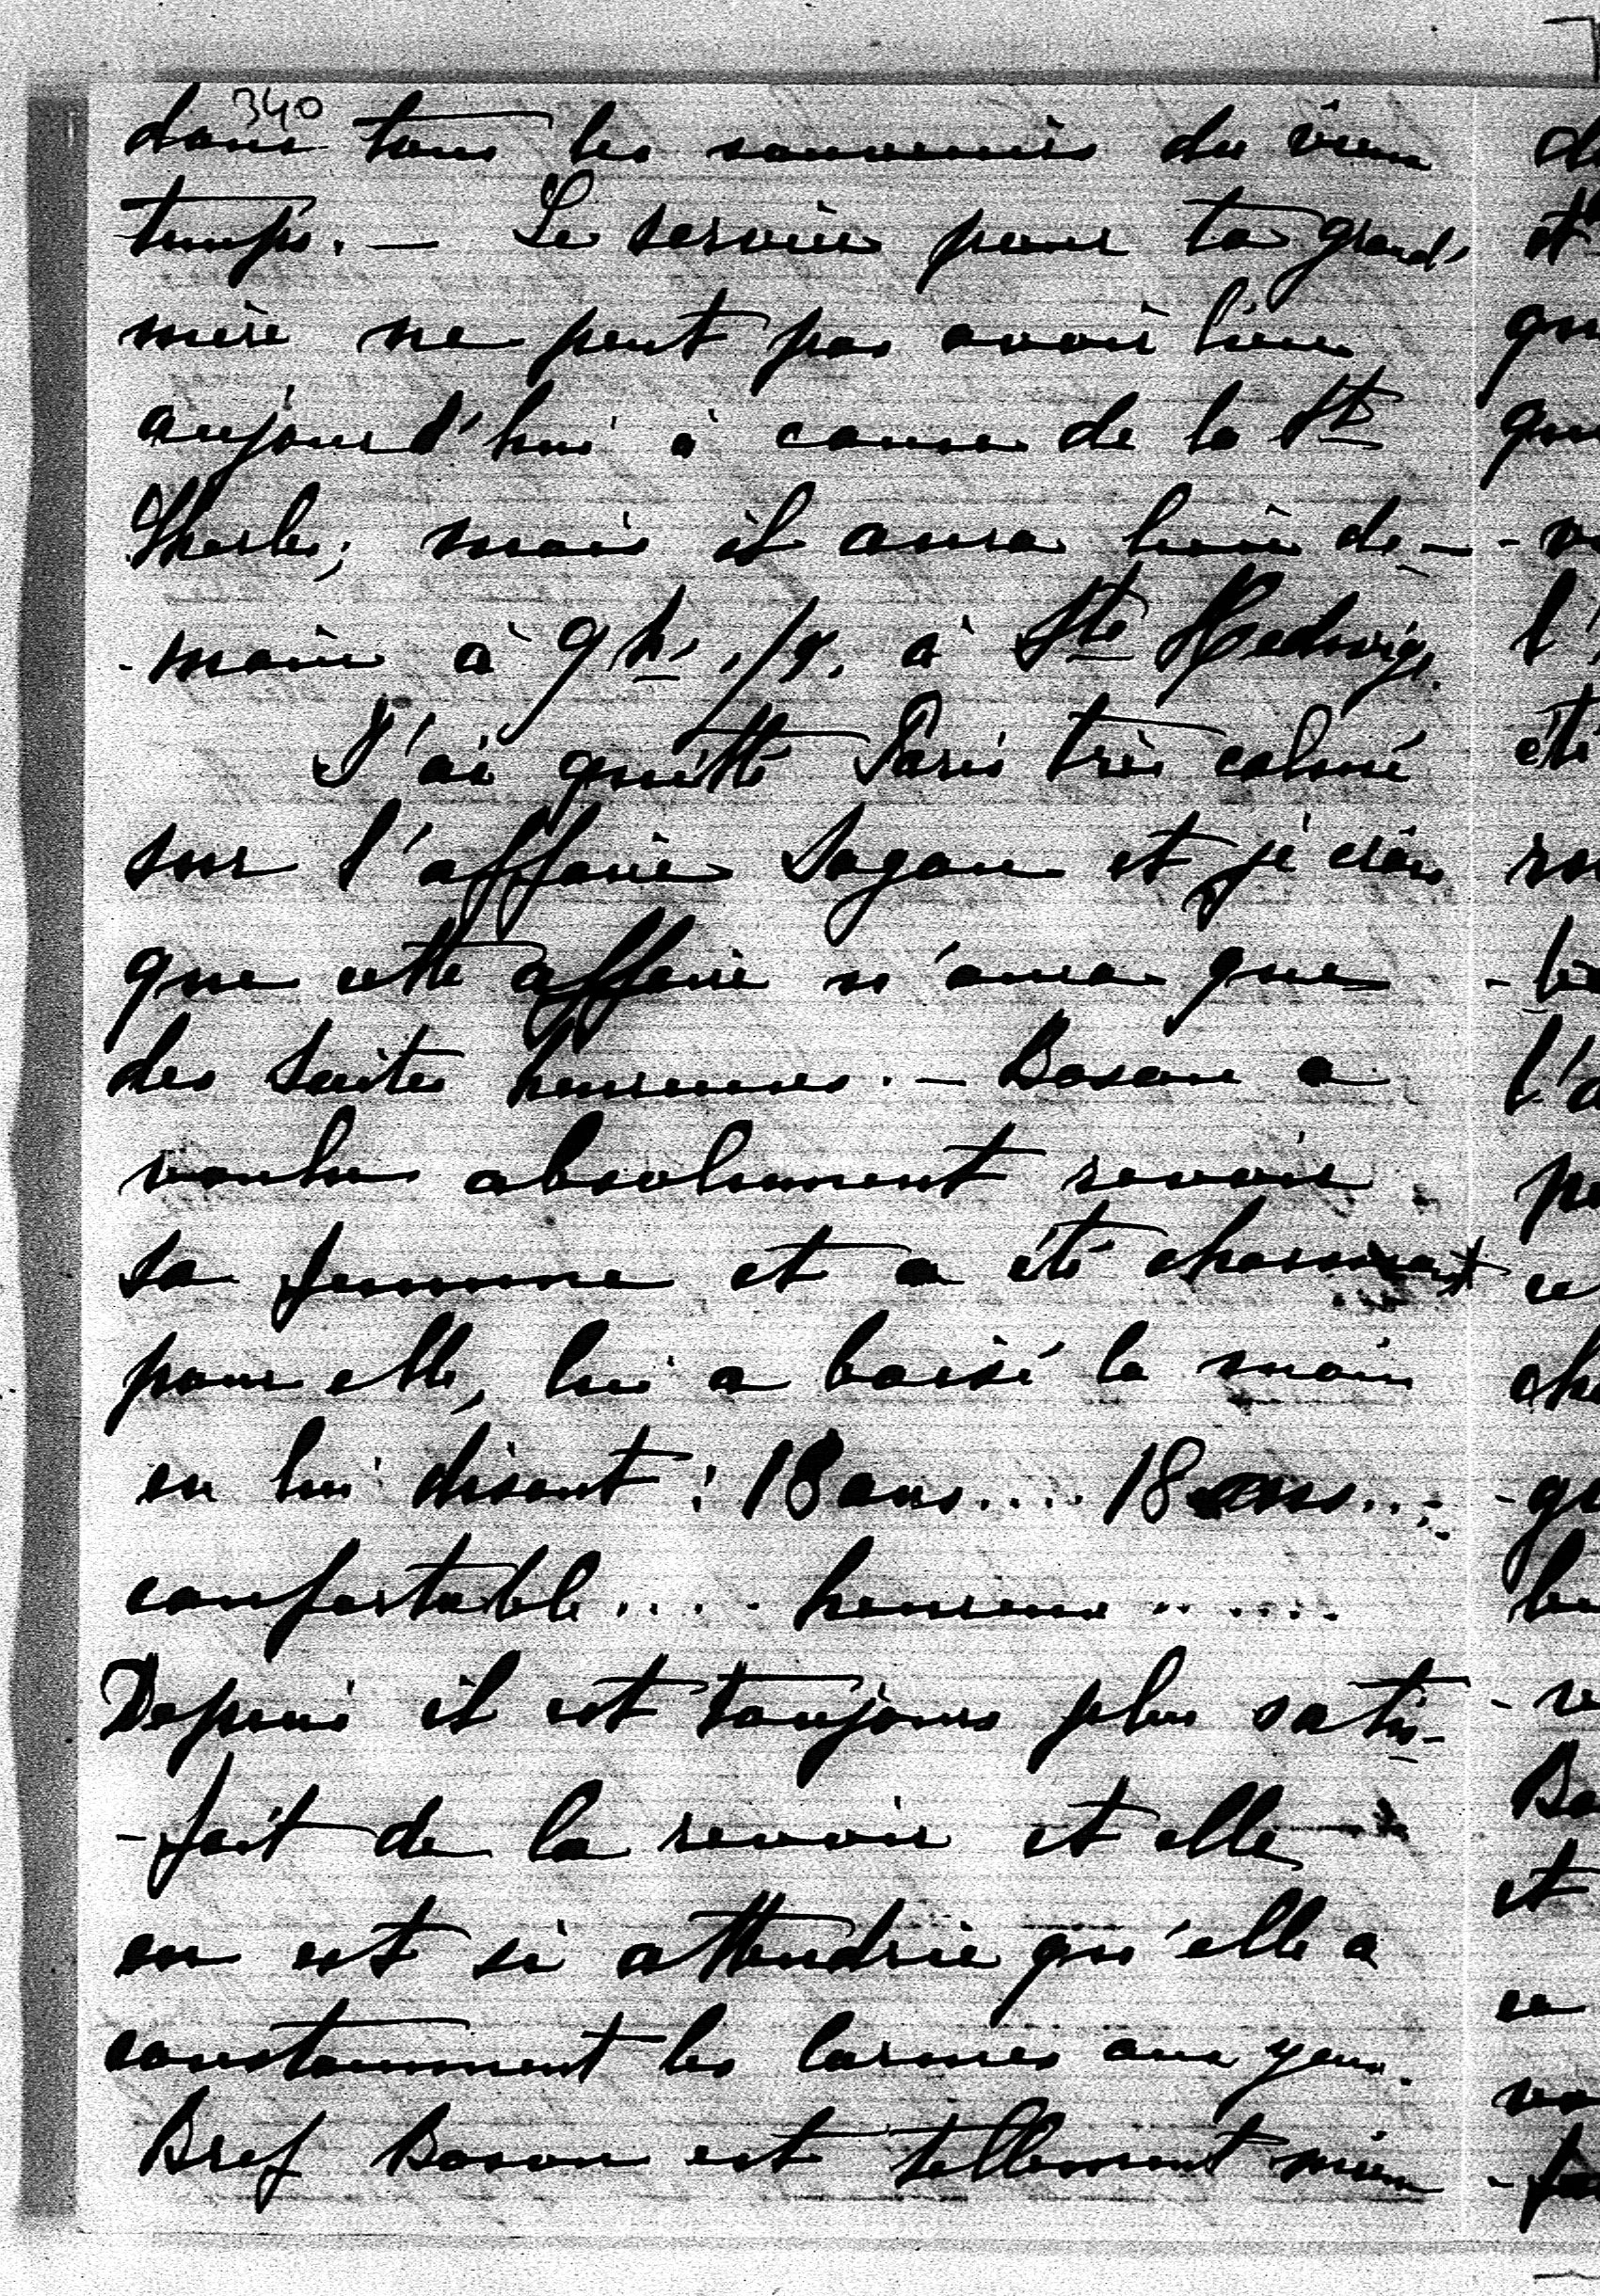 340
dans tous les souvenirs du vieux
temps. — Le service pour ta grand'
mère ne peut pas avoir lieu
aujourd'hui à cause de la St
Charles; mais il aura lieu de-
-main à 9h. à Ste Hedwige.
J'ai quitté Paris très calmé
sur l'affaire Sagan et je crois
que cette affaire n'aura que
des suites heureuses. — Boson a
voulu absolument revoir
sa femme et a été charmant
pour elle, lui a baisé la main
en lui disant : 18 ans.... 18 ans....
confortable.... heureux......
Depuis il est toujours plus satis-
-fait de la revoir et elle
en est si attendrie qu'elle a
constamment les larmes aux yeux.
Bref Boson est tellement mieux